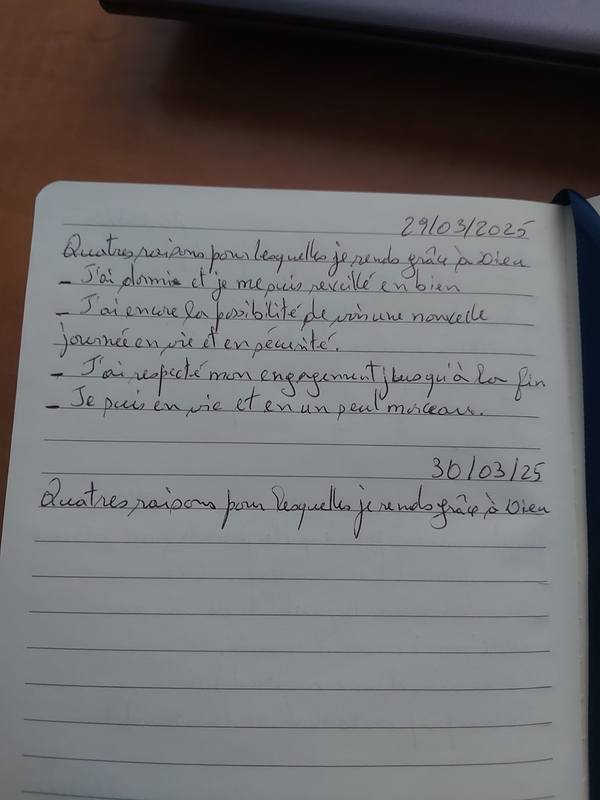 29/03/2025
Quatres raisons pour lesquelles je rends grâce à Dieu
- J'ai dormie et je me suis reveillé en bien
- J'ai encore la possibilité de voir une nouvelle
journée en vie et en sécurité.
- J'ai respecté mon engagement jusqu'à la fin
- Je suis en vie et en un seul morceau.
30/03/25
Quatres raisons pour lesquelles je rends grâce à Dieu